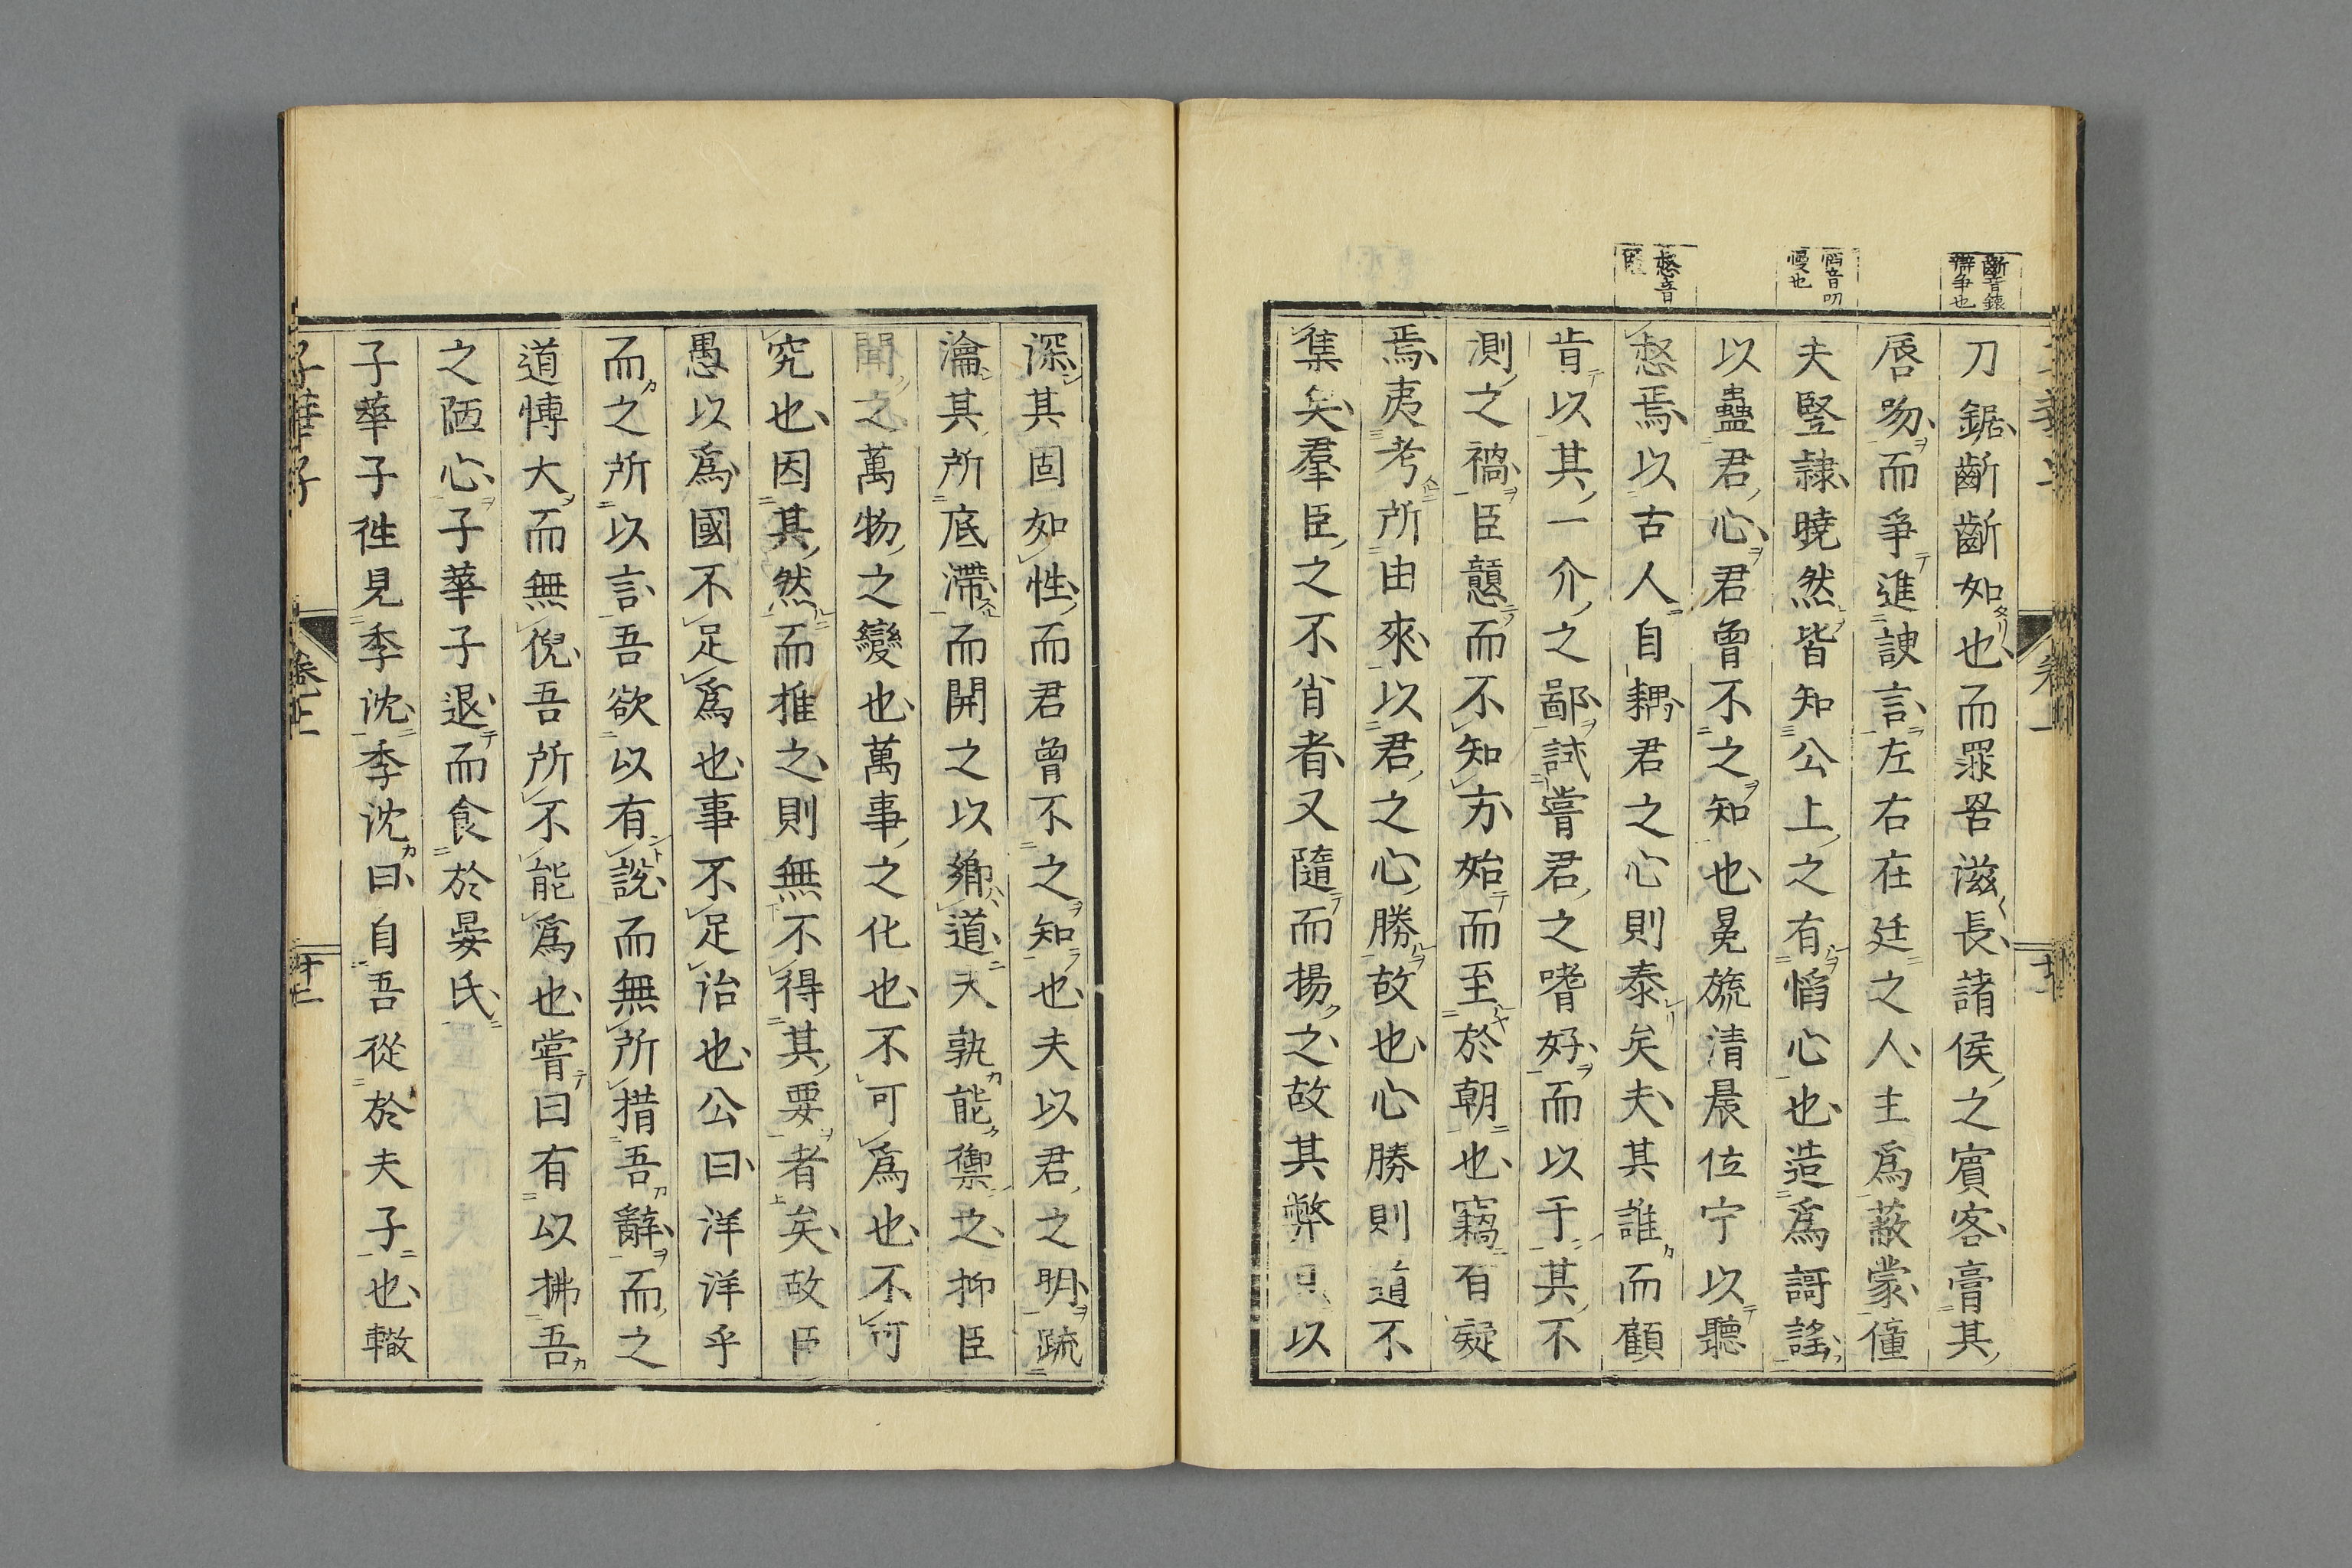 齗音銀
辯爭也
慆音叨
慢也
憗音
刀鋸齗齗如也而罪罟滋長諸侯之賓客膏其
唇吻而爭進諛言左右在廷之人主爲蔽蒙僮
夫竪隷曉然皆知公上之有慆心也造爲謌謠
以蠱君心君曾不之知也冕旒清晨位宁以聽
憗焉以古人自耦君之心則泰矣夫其誰而顧
肯以其一介之鄙試嘗君之嗜好而以于其不
測之禍臣戇而不知方始而至於朝也竊有疑
焉夷考所由來以君之心勝故也心勝則道不
集矣羣臣之不肖者又隨而揚之故其弊以
深其固如性而君曾不之知也夫以君之明疏
瀹其所底滯而開之以鄉道夫孰能禦之抑臣
聞之萬物之變也萬事之化也不可爲也不可
究也因其然而推之則無不得其要者矣故臣
愚以爲國不足爲也事不足治也公曰洋洋乎
而之所以言吾欲以有說而無所措吾辭而之
道博大而無倪吾所不能爲也嘗曰有以拂吾
之陋心子華子退而食於晏氏
子華子徃見季沈季沈曰自吾從於夫子也轍
子華子
卷上
十二